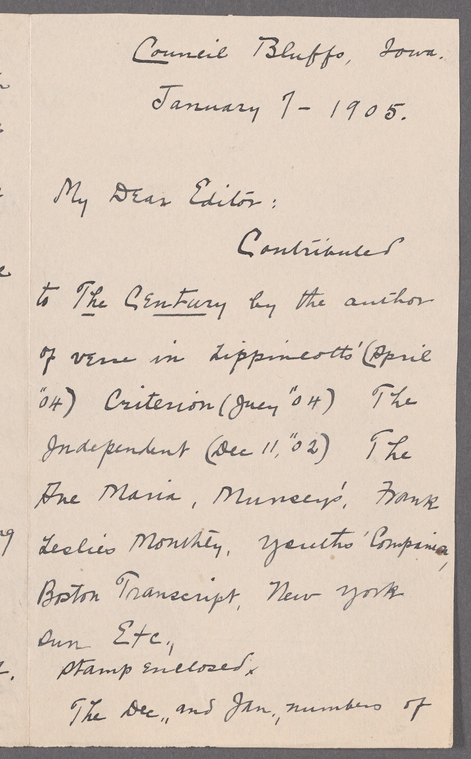 Council Bluffs, Iowa.
January 7 - 1905.
My Dear Editor:
Contributed
to The Century by the author
of verse in Lippincotts' (April
"04) Criterion (July "04) The
Independent (Dec 11, "02) The
Ave Maria, Munsey's, Frank
Leslies Monthly, Youths' Companion,
Boston Transcript, New York
Sun Etc.,
Stamp enclosed.
The Dec., and Jan., numbers of